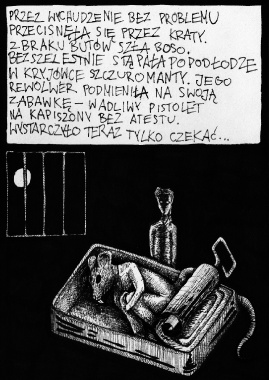 PRZEZ WYCHUDZENIE BEZ PROBLEMU
PRZECISNĘŁA SIĘ PRZEZ KRATY.
Z BRAKU BUTÓW SZŁA BOSO.
BEZSZELESTNIE STĄPAŁA PO PODŁODZE
W KRYJÓWCE SZCZUROMANTY. JEGO
REWOLWER PODMIENIŁA NA SWOJĄ
ZABAWKĘ – WADLIWY PISTOLET
NA KAPISZONY BEZ ATESTU.
WYSTARCZYŁO TERAZ TYLKO CZEKAĆ...